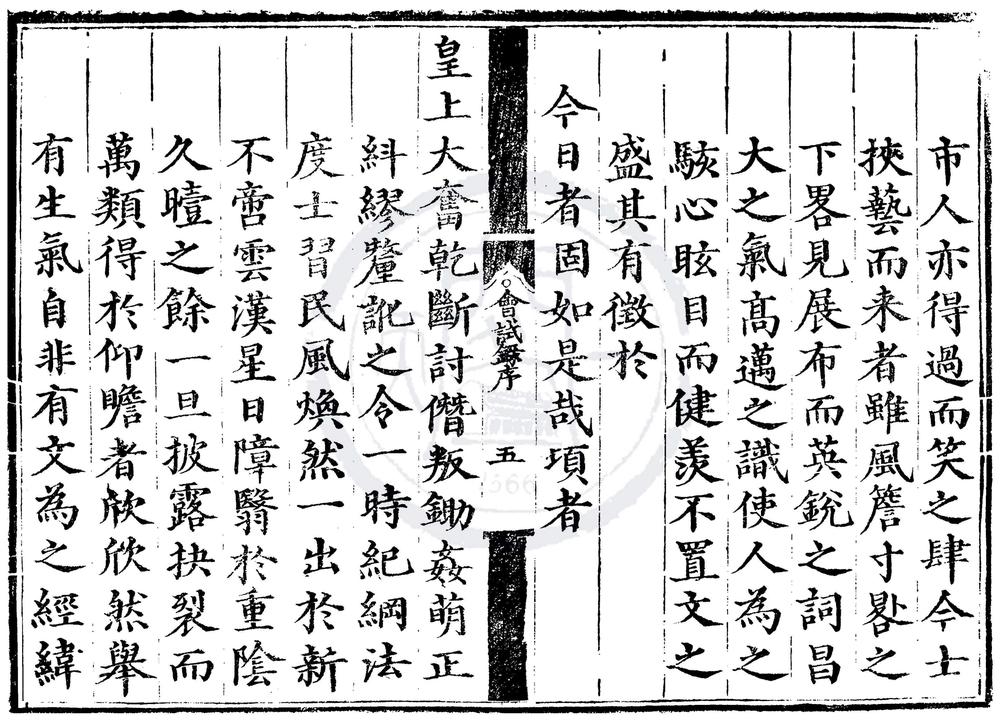 市人亦得過而笑之肆今士
挾藝而来者雖風簷寸晷之
下畧見展布而英銳之詞昌
大之氣髙邁之識使人為之
駭心眩目而健羨不置文之
盛其有徵於
今日者固如是哉頃者
會試錄序
五
皇上大奮乾斷討僭叛鋤姦萌正
紏繆釐訛之令一時紀綱法
度士習民風煥然一出於新
不啻雲漢星日障翳於重陰
久曀之餘一旦披露抉裂而
萬類得於仰瞻者欣欣然舉
有生氣自非有文為之經緯